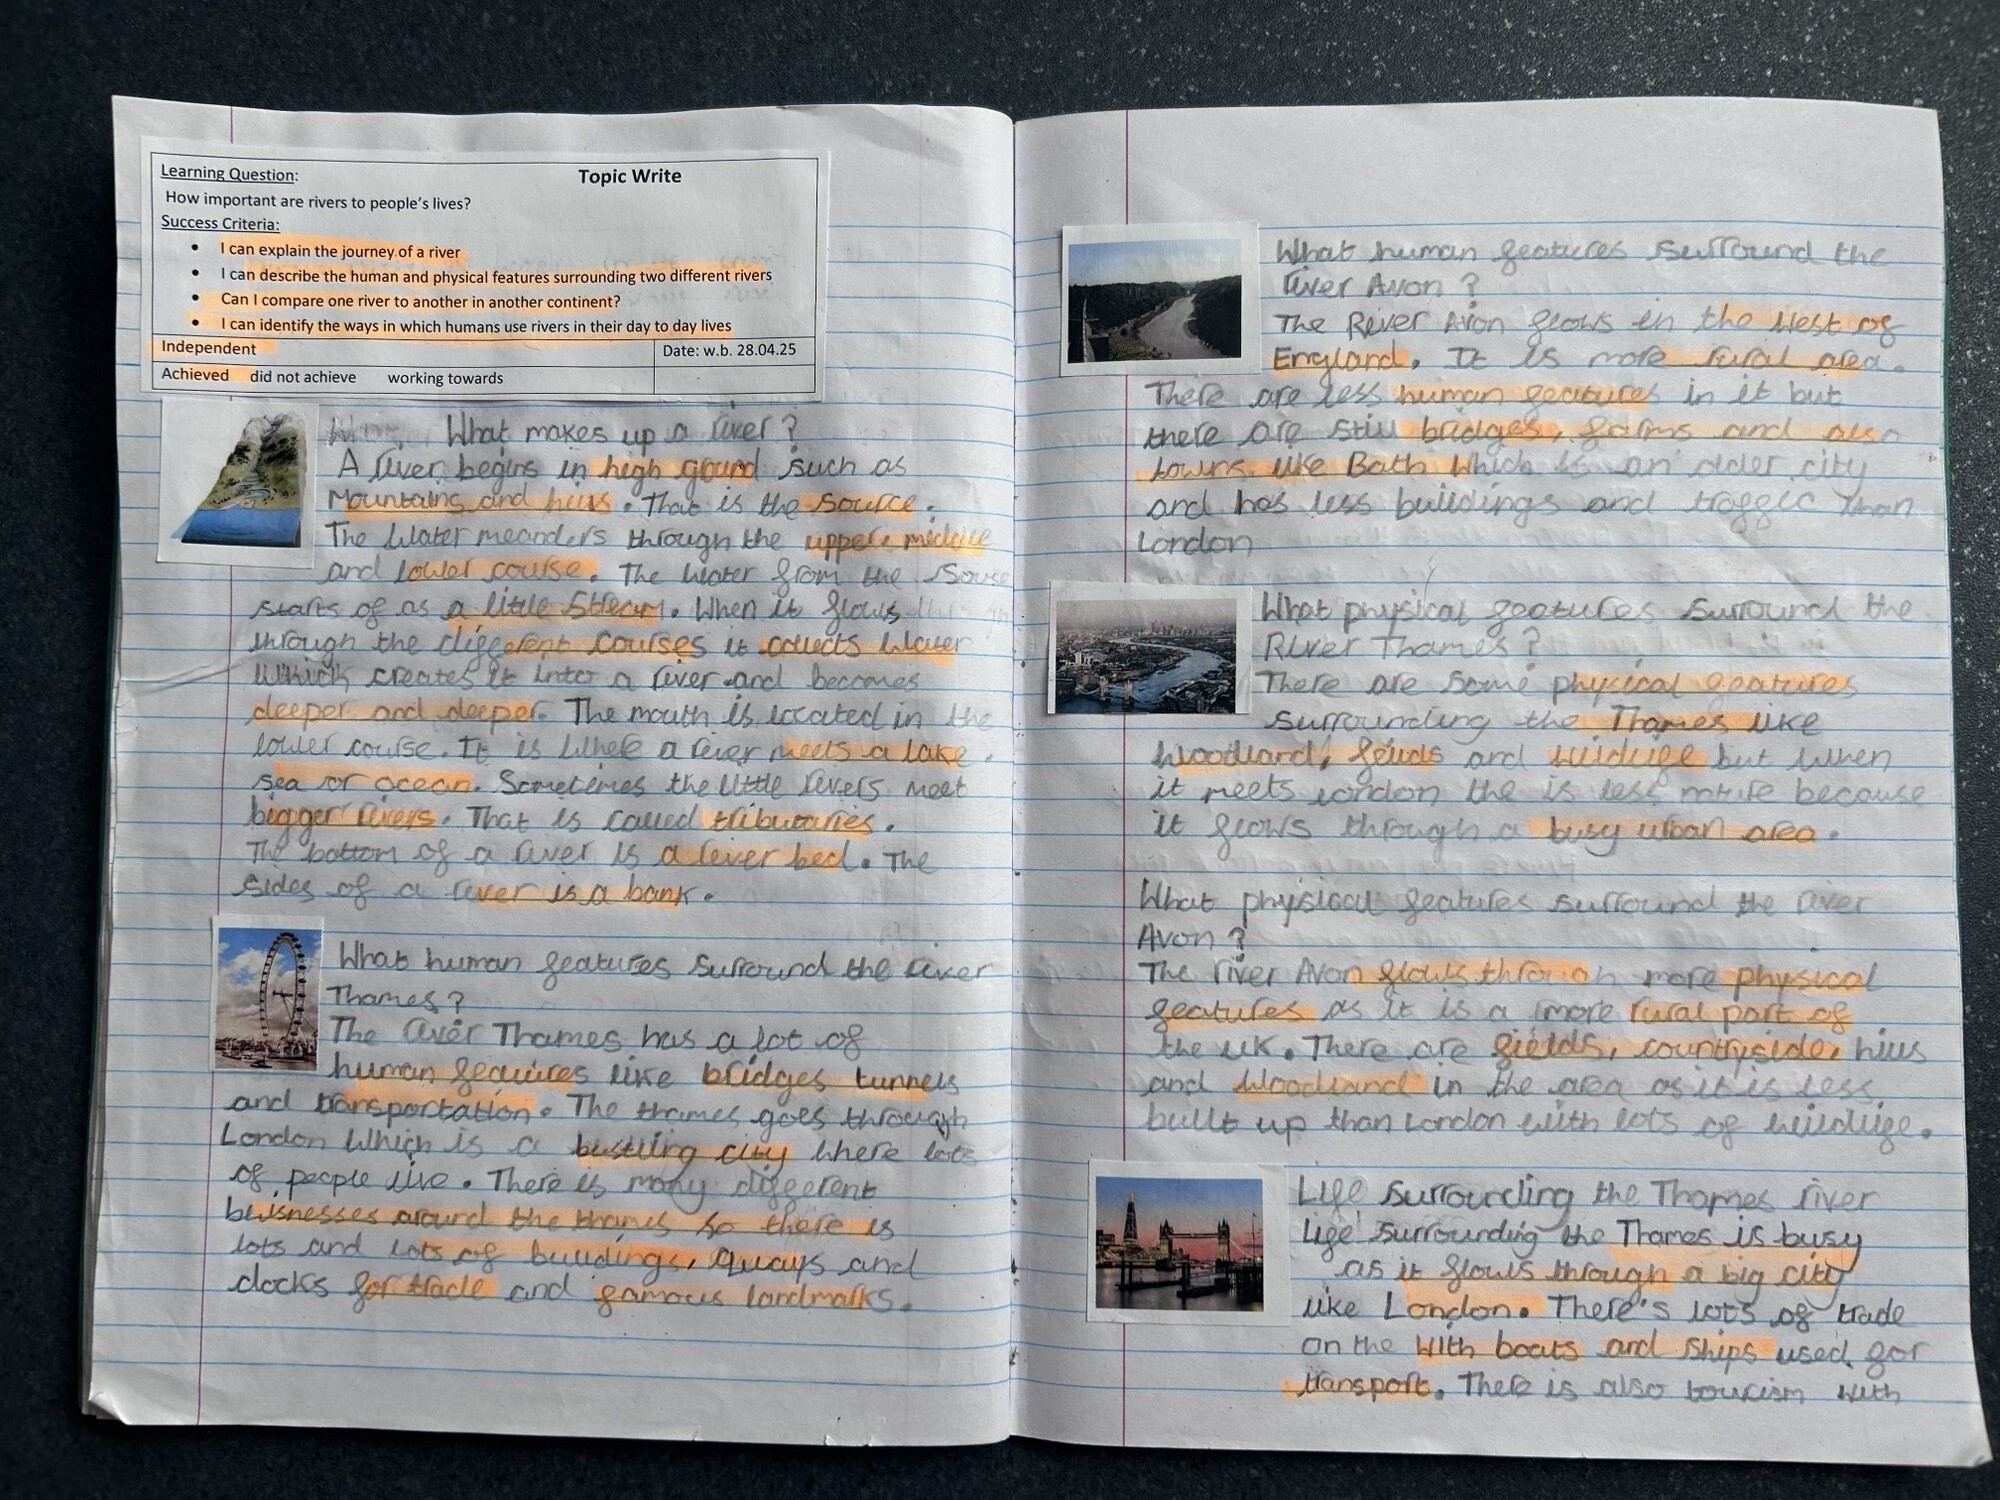 Learning Question: Topic Write
How important are rivers to people's lives?
Success Criteria:
• I can explain the journey of a river
• I can describe the human and physical features surrounding two different rivers
• Can I compare one river to another in another continent?
• I can identify the ways in which humans use rivers in their day to day lives
Independent Date: w.b. 28.04.25
Achieved did not achieve working towards
What makes up a river?
A river begins in high gound such as
Mountains and hills. That is the source.
The Water meanders through the upper middle
and lower course. The Water from the
starts of as a little stream. When it flows
through the different courses it collects Water
Which creates it into a river and becomes
deeper and deeper. The mouth is located in the
lower course. It is Where a river meets a lake,
sea or ocean. Sometimes the little rivers meet
bigger rivers. That is called tributaries.
The bottom of a river is a river bed. The
sides of a river is a bank.
What human features surround the river
Thames?
The river Thames has a lot of
human features like bridges tunnels
and transportation. The thames goes through
London Which is a bustling city where lots
of people live. There is many different
buisnesses around the thames so there is
lots and lots of buildings, Quays and
docks for trade and famous landmarks.
What human features surround the
river Avon?
The River Avon flows in the West of
England. It is more rural area.
There are less human features in it but
there are still bridges, farms and also
towns like Bath Which is an older city
and has less buildings and traffic than
London
What physical features surround the
River Thames?
There are some physical features
surrounding the Thames like
Woodland, feilds and wildlife but When
it meets London the is less because
it flows through a busy urban area.
What physical features surround the river
Avon?
The river Avon flows through more physical
features as it is a more rural part of
the UK. There are fields, countryside, hills
and Woodland in the area as it is less
built up than London with lots of wildlife.
Life surrounding the Thames river
Life surrounding the Thames is busy
as it flows through a big city
like London. There's lots of trade
on the With boats and ships used for
transport. There is also tourism with